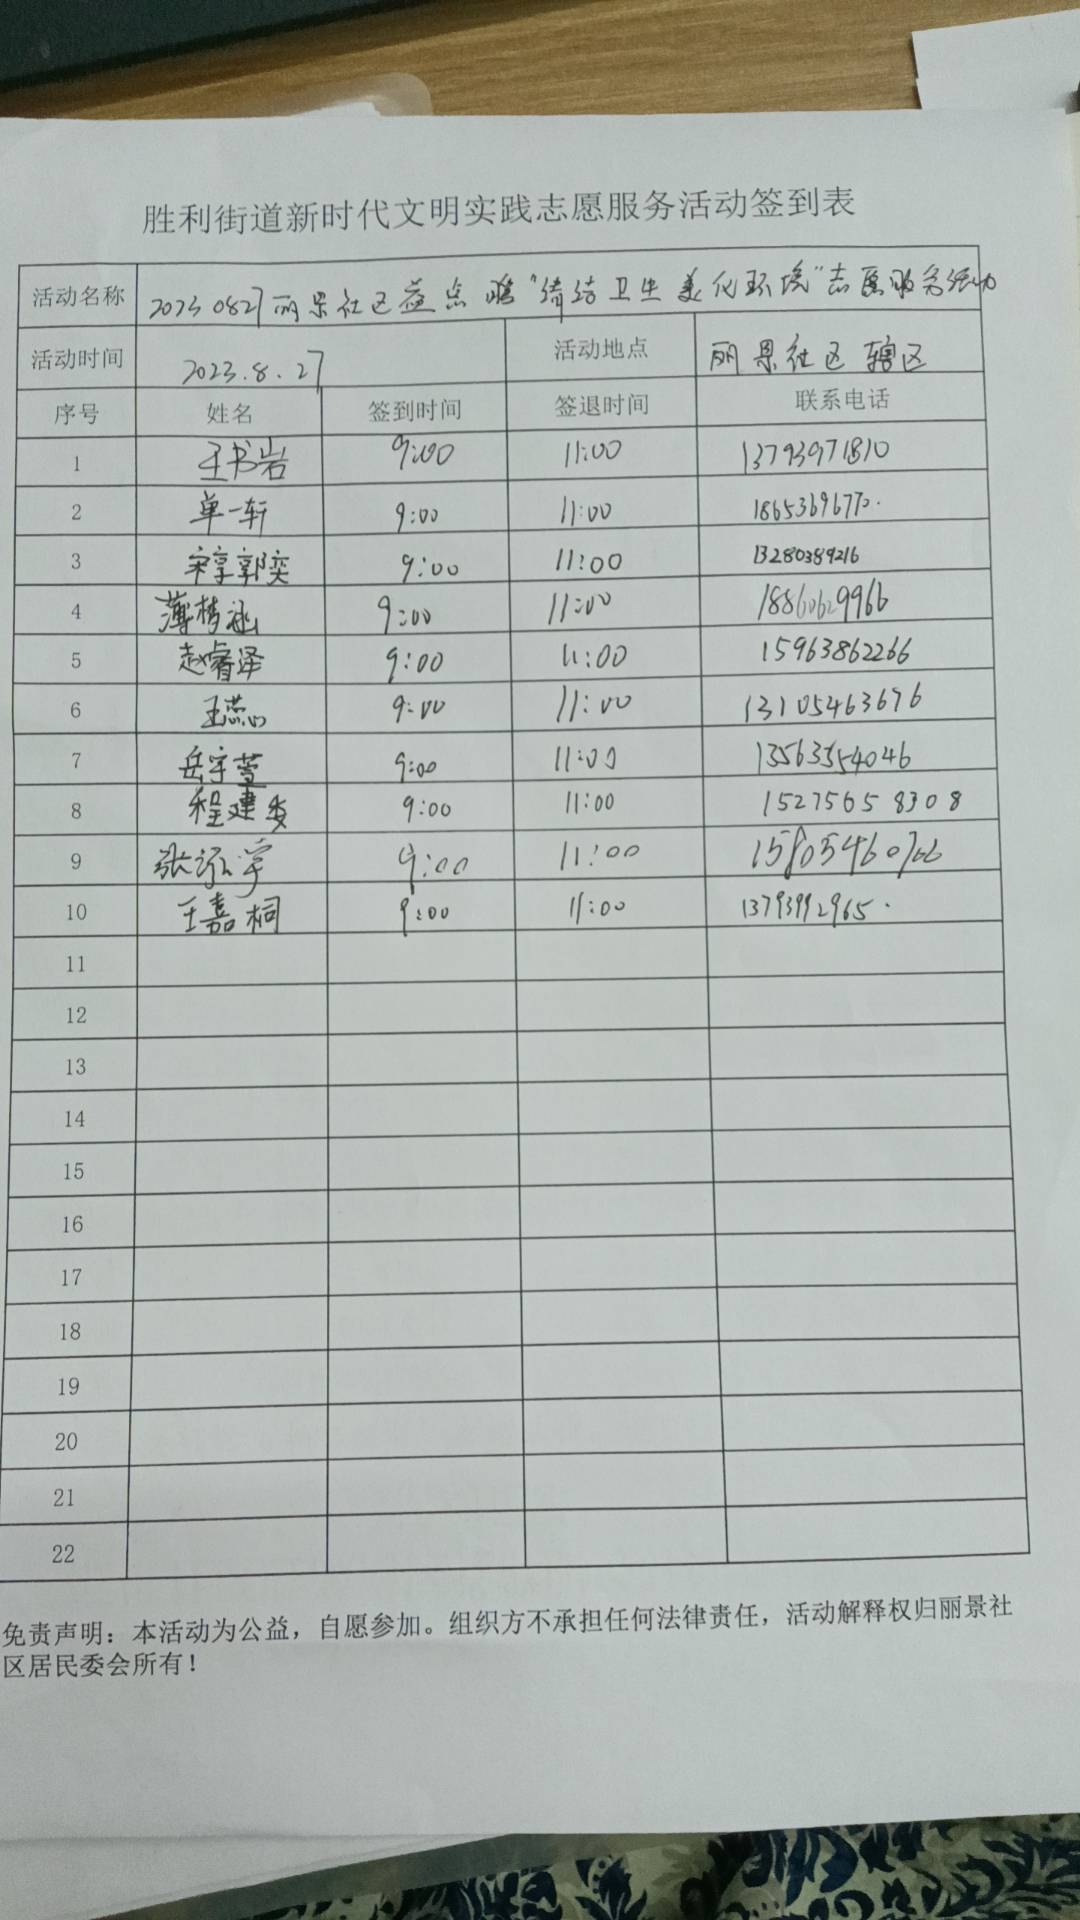 胜利街道新时代文明实践志愿服务活动签到表
活动名称 20230827丽景社区益点瞻"清洁卫生美化环境"志愿服务活动
活动时间 2023.8.27 活动地点 丽景社区辖区
序号 姓名 签到时间 签退时间 联系电话
1 王书岩 9:00 11:00 13793971810
2 单一轩 9:00 11:00 18653696770.
3 宋享郭奕 9:00 11:00 13280389216
4 薄梦涵 9:00 11:00 18860629966
5 赵睿泽 9:00 11:00 15963862266
6 王蕊 9:00 11:00 13105463696
7 岳宇萱 9:00 11:00 13563354046
8 程建 9:00 11:00 15275658308
9 张泓宇 9:00 11:00 15805460766
10 王嘉桐 9:00 11:00 13793992965.
11
12
13
14
15
16
17
18
19
20
21
22
免责声明：本活动为公益，自愿参加。组织方不承担任何法律责任，活动解释权归丽景社
区居民委会所有！